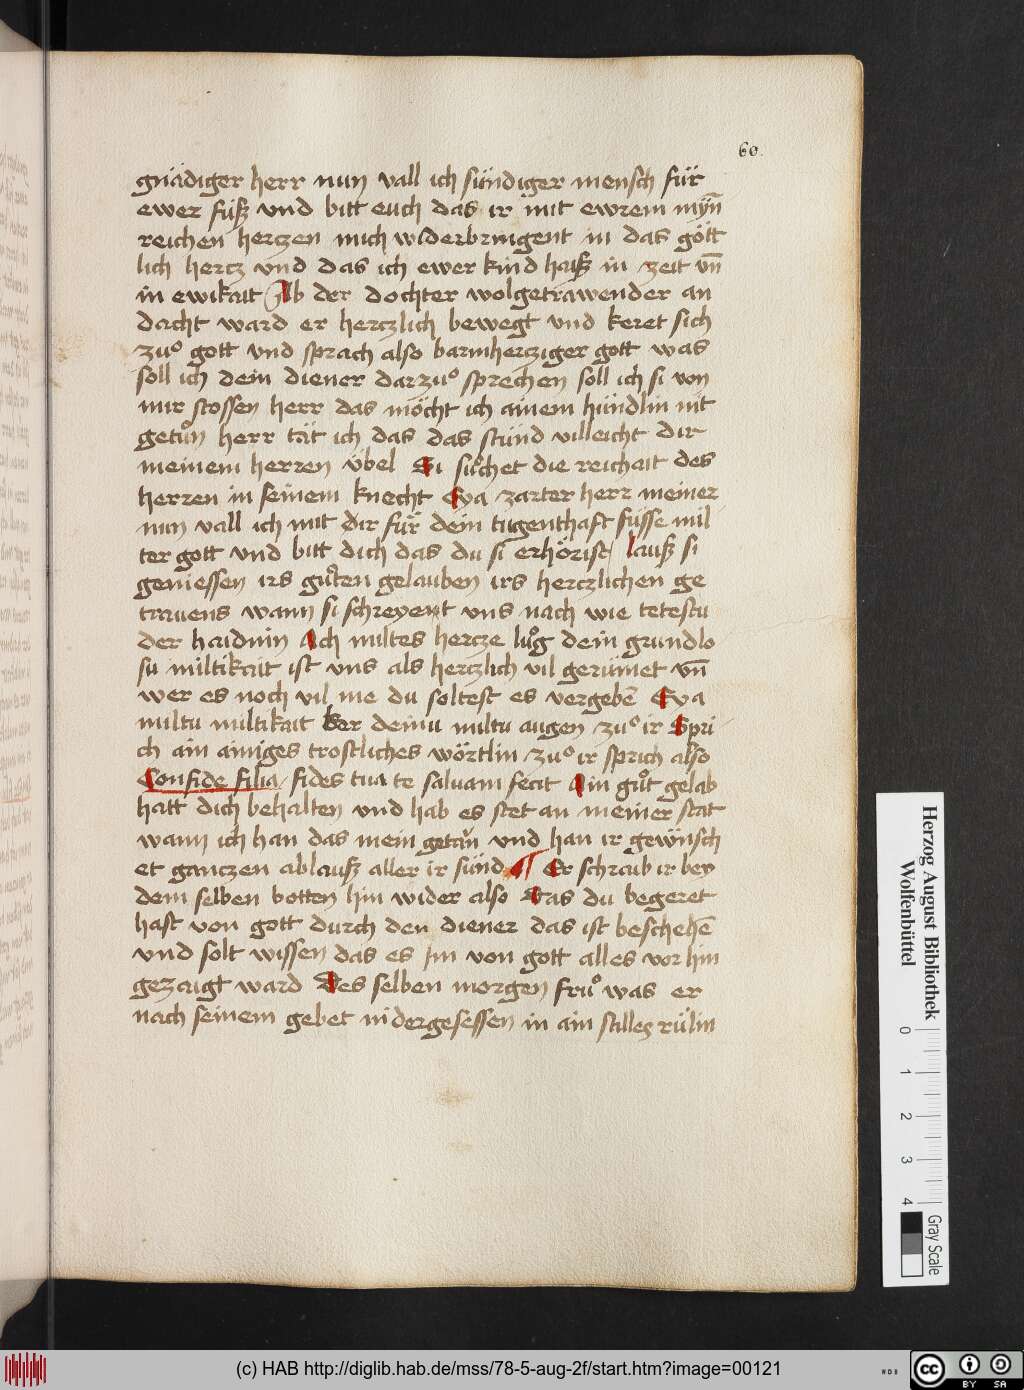 60.
gnädiger herr nun vall ich sündiger mensch für
ewer füsz vnd bitt euch das ir mit ewrem myn̄
reichen hertzen mich widerbringent in das gött
lich hertz vnd das ich ewer kind haisz in zeit vn̄
in ewikait Ab der dochter wolgetrawender an
dacht ward er hertzlich bewegt vnd keret sich
zuͦ gott vnd sprach also barmhertziger gott was
soll ich dein diener darzuͦ sprechen soll ich si von
mir stossen herr das möcht ich ainem hündlin nit
getuͦn herr tät ich das das stünd villeicht dir
meinem herren übel Si suͦchet die reichait des
herren in seinem knecht Eya zarter herr meiner
nun vall ich mit dir für dein tugenthaft füsse mil
ter gott vnd bitt dich das du si erhörist lausz si
geniessen irs guͦten gelauben irs hertzlichen ge
trauens wann si schreyent vns nach wie tetestu
der haidnin Ach miltes hercze luͦg dein grundlo
su miltikait ist vns als hertzlich vil gerümet vn̄
wer es noch vil me du soltest es vergebē Eya
miltu miltikait ker deinu miltu augen zuͦ ir Spri
ch ain ainiges trostliches wörtlin zuͦ ir sprich also
Confide filia fides tua te saluam fecit Ain guͦt gelab
hatt dich behalten vnd hab es stet an meiner stat
wann ich han das mein getan vnd han ir gewünsch
et ganczen ablausz aller ir sünd ¶ Er schraib ir bey
dem selben botten hin wider also Das du begeret
hast von gott durch den diener das ist beschehē
vnd solt wissen das es im von gott alles vor hin
gezaigt ward Des selben morgen fruͦ was er
nach seinem gebet nidergesessen in ain stilles rülin
Herzog August Bibliothek
Wolfenbüttel
0 1 2 3 4
Gray Scale
(c) HAB http://diglib.hab.de/mss/78-5-aug-2f/start.htm?image=00121
WDB
cc BY SA